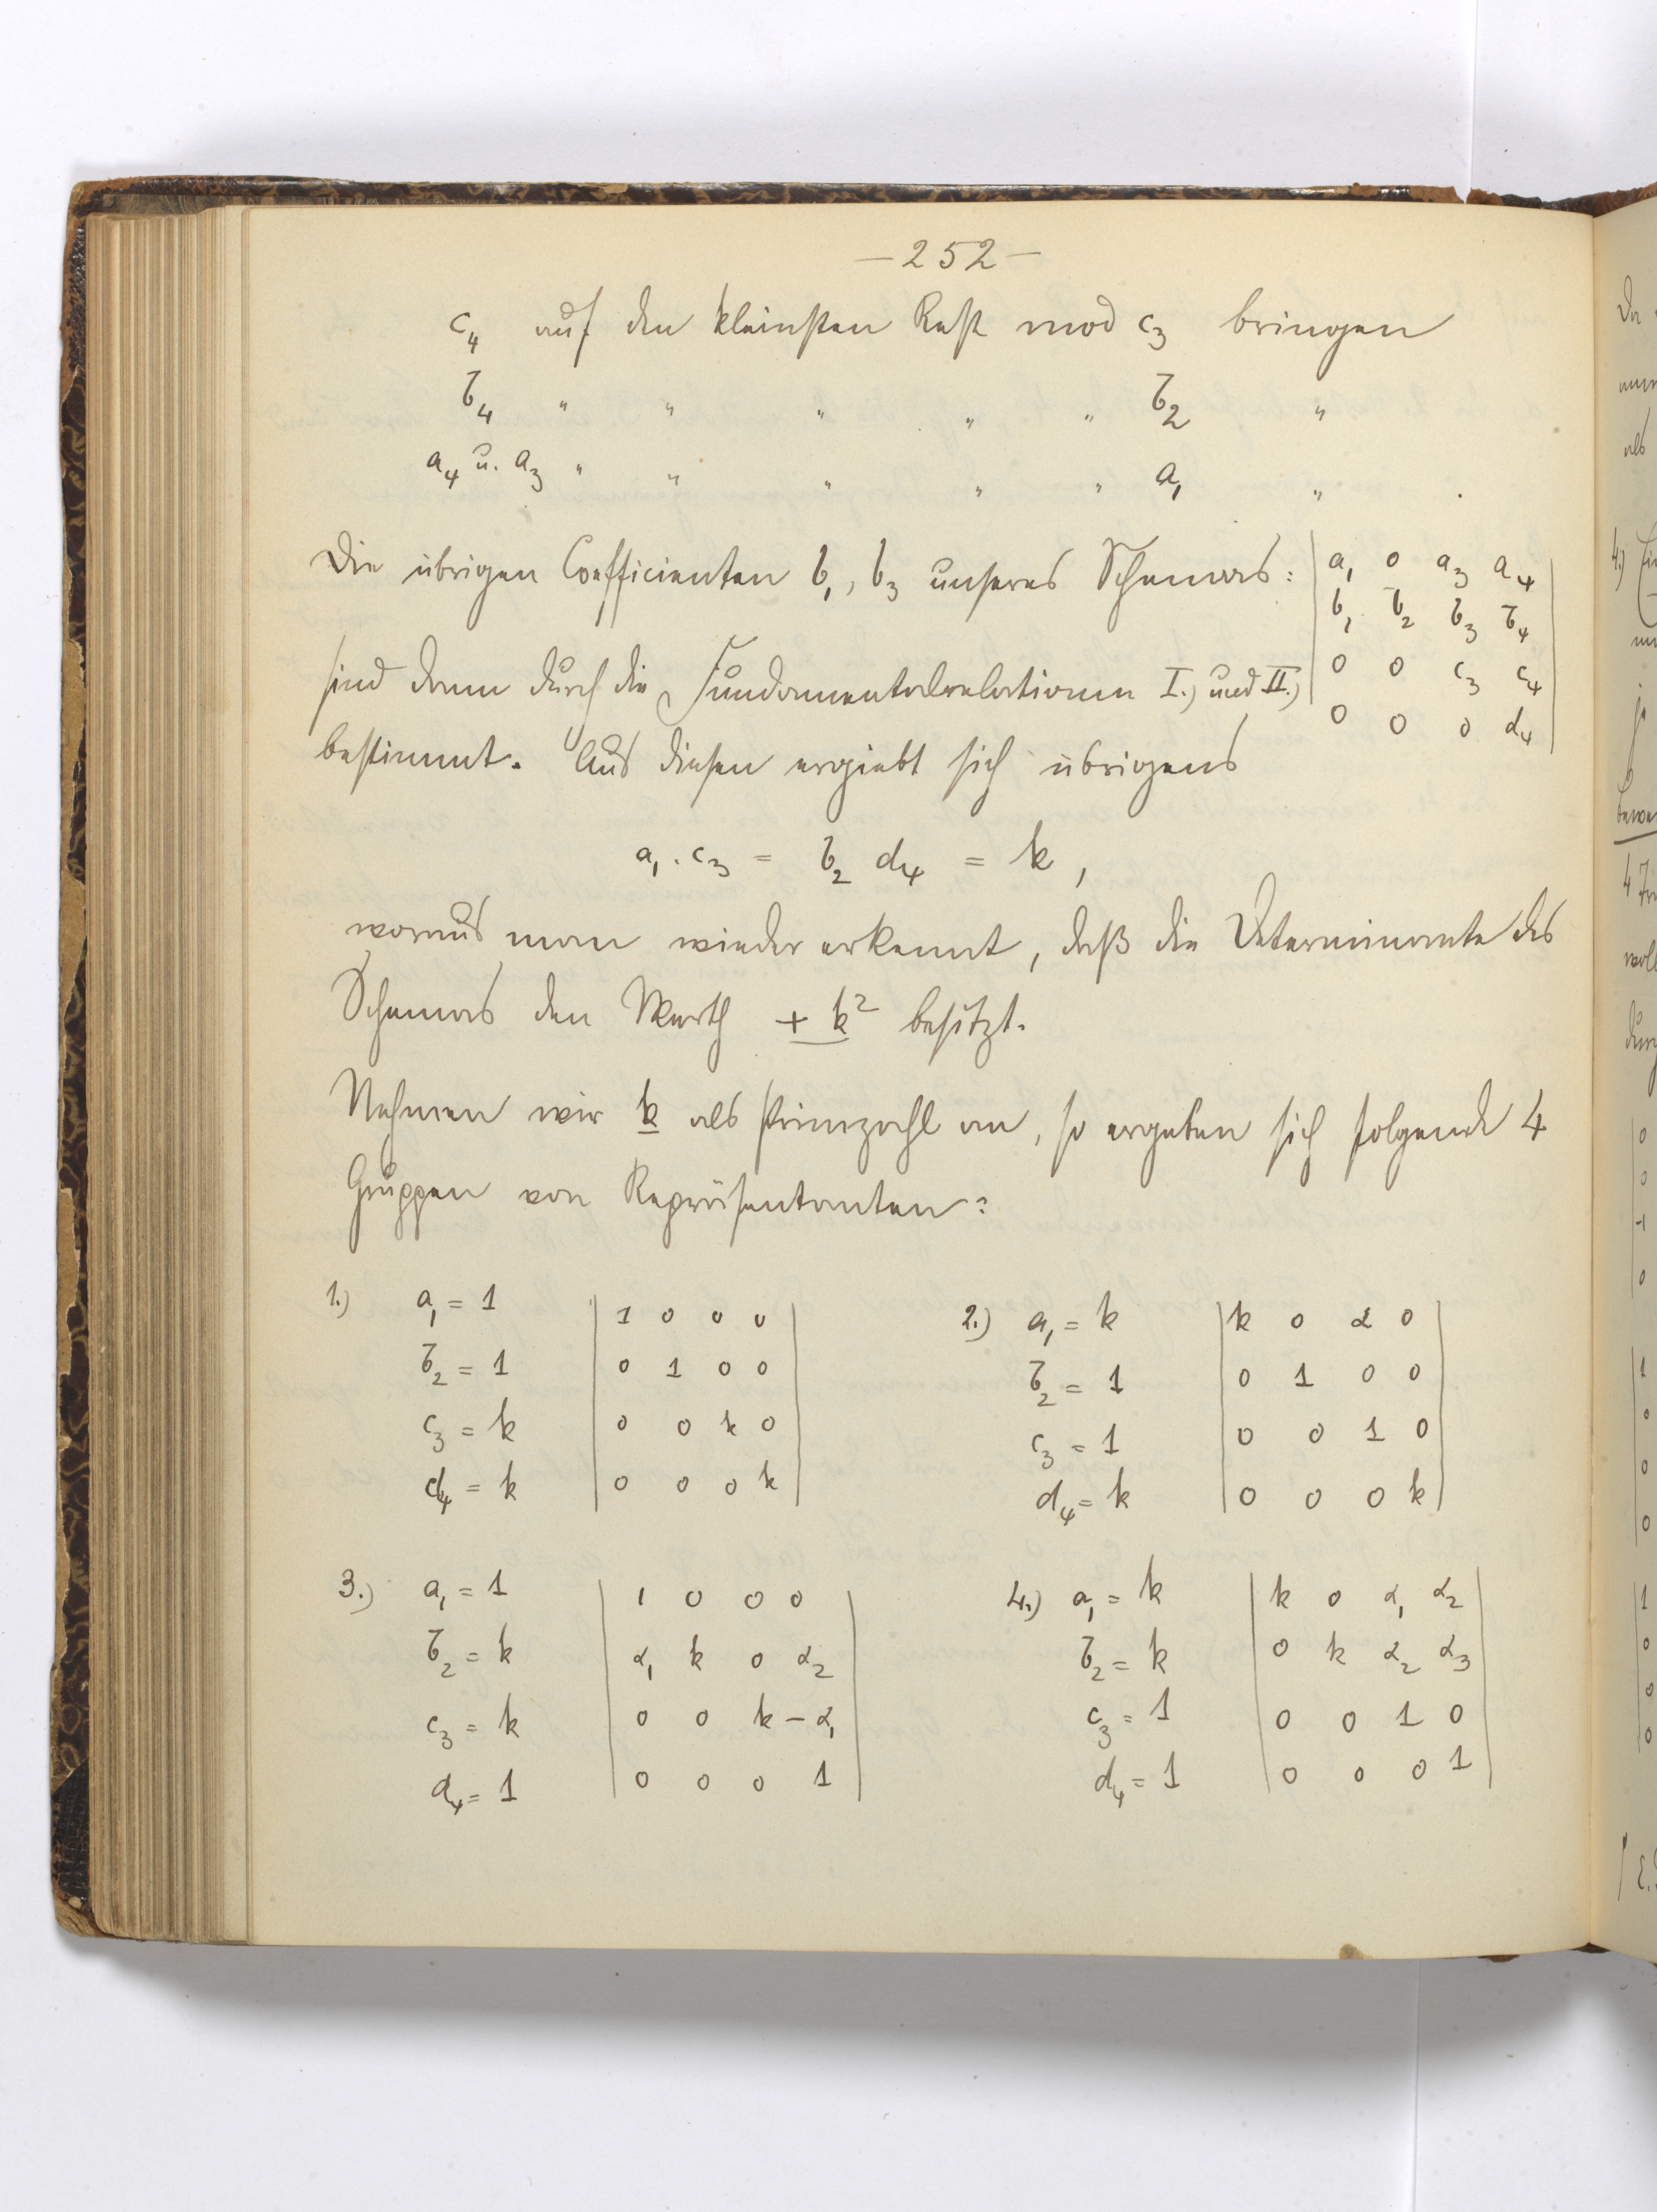 —252—
c₄ auf den kleinsten Rest mod c₃ bringen
b₄ " " " " " b₂ "
a₄ u. a₃ " " " " " a₁ " .
Die übrigen Coefficienten b₁, b₃ unseres Schemas: | a₁ 0 a₃ a₄ |
| b₁ b₂ b₃ b₄ |
sind dann durch die Fundamentalrelationen I.) und II.) | 0 0 c₃ c₄ |
| 0 0 0 d₄ |
bestimmt. Aus diesen ergiebt sich übrigens
a₁ . c₃ = b₂ d₄ = k ,
woraus man wieder erkennt, daß die Determinante des
Schemas den Werth + k² besitzt.
Nehmen wir k als Primzahl an, so ergeben sich folgende 4
Gruppen von Repräsentanten:
1.) a₁ = 1 | 1 0 0 0 |
b₂ = 1 | 0 1 0 0 |
c₃ = k | 0 0 k 0 |
d₄ = k | 0 0 0 k |
2.) a₁ = k | k 0 α 0 |
b₂ = 1 | 0 1 0 0 |
c₃ = 1 | 0 0 1 0 |
d₄ = k | 0 0 0 k |
3.) a₁ = 1 | 1 0 0 0 |
b₂ = k | α₁ k 0 α₂ |
c₃ = k | 0 0 k -α₁ |
d₄ = 1 | 0 0 0 1 |
4.) a₁ = k | k 0 α₁ α₂ |
b₂ = k | 0 k α₂ α₃ |
c₃ = 1 | 0 0 1 0 |
d₄ = 1 | 0 0 0 1 |